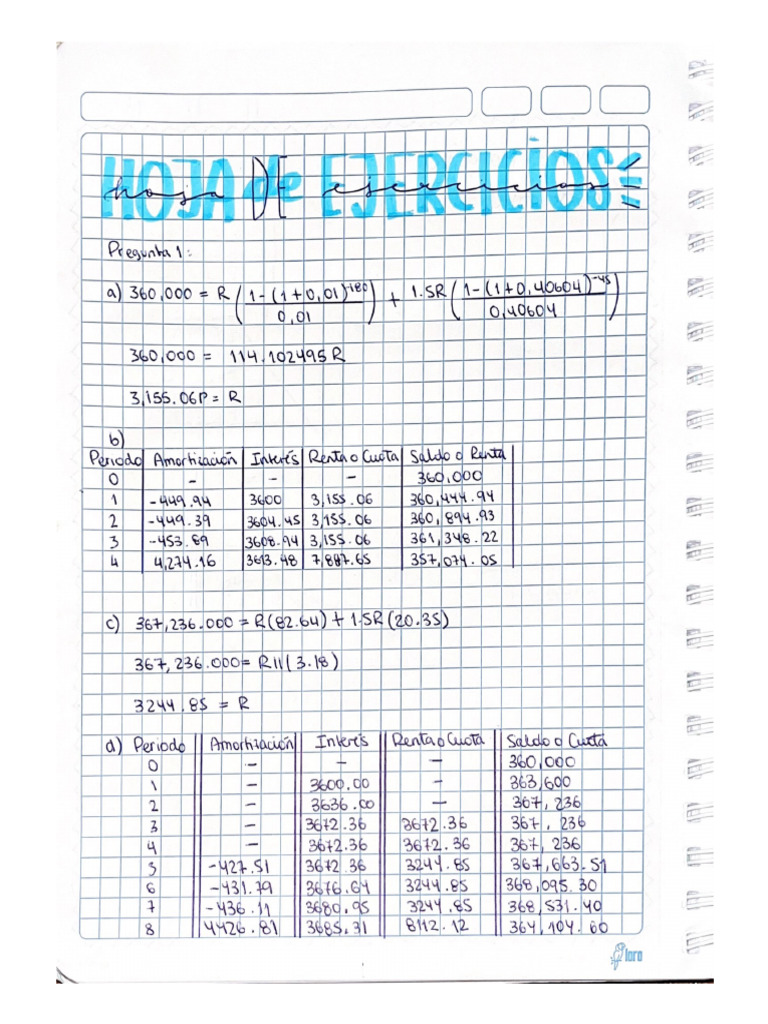 HOJA de EJERCICIOS
hoja DE ejercicios
Pregunta 1:
a) 360,000 = R ( 1-(1+0,01)^-180 / 0,01 ) + 1.5R ( 1-(1+0,40604)^-45 / 0,40604 )
360,000 = 114.102495 R
3,155.06P = R
b)
Periodo Amortización Interés Renta o Cuota Saldo o Renta
0 - - - 360,000
1 -449.94 3600 3,155.06 360,444.94
2 -449.39 3604.45 3,155.06 360,894.93
3 -453.89 3608.94 3,155.06 361,348.22
4 4,274.16 3613.48 7,887.65 357,074.05
c) 367,236.000 = R(82.64) + 1.5R(20.35)
367,236.000 = R11(3.18)
3244.85 = R
d) Periodo Amortización Interés Renta o Cuota Saldo o Cuota
0 - - - 360,000
1 - 3600.00 - 363,600
2 - 3636.00 - 367,236
3 - 3672.36 3672.36 367,236
4 - 3672.36 3672.36 367,236
5 -427.51 3672.36 3244.85 367,663.51
6 -431.79 3676.64 3244.85 368,095.30
7 -436.11 3680.95 3244.85 368,531.40
8 4426.81 3685.31 8112.12 364,104.60
loro